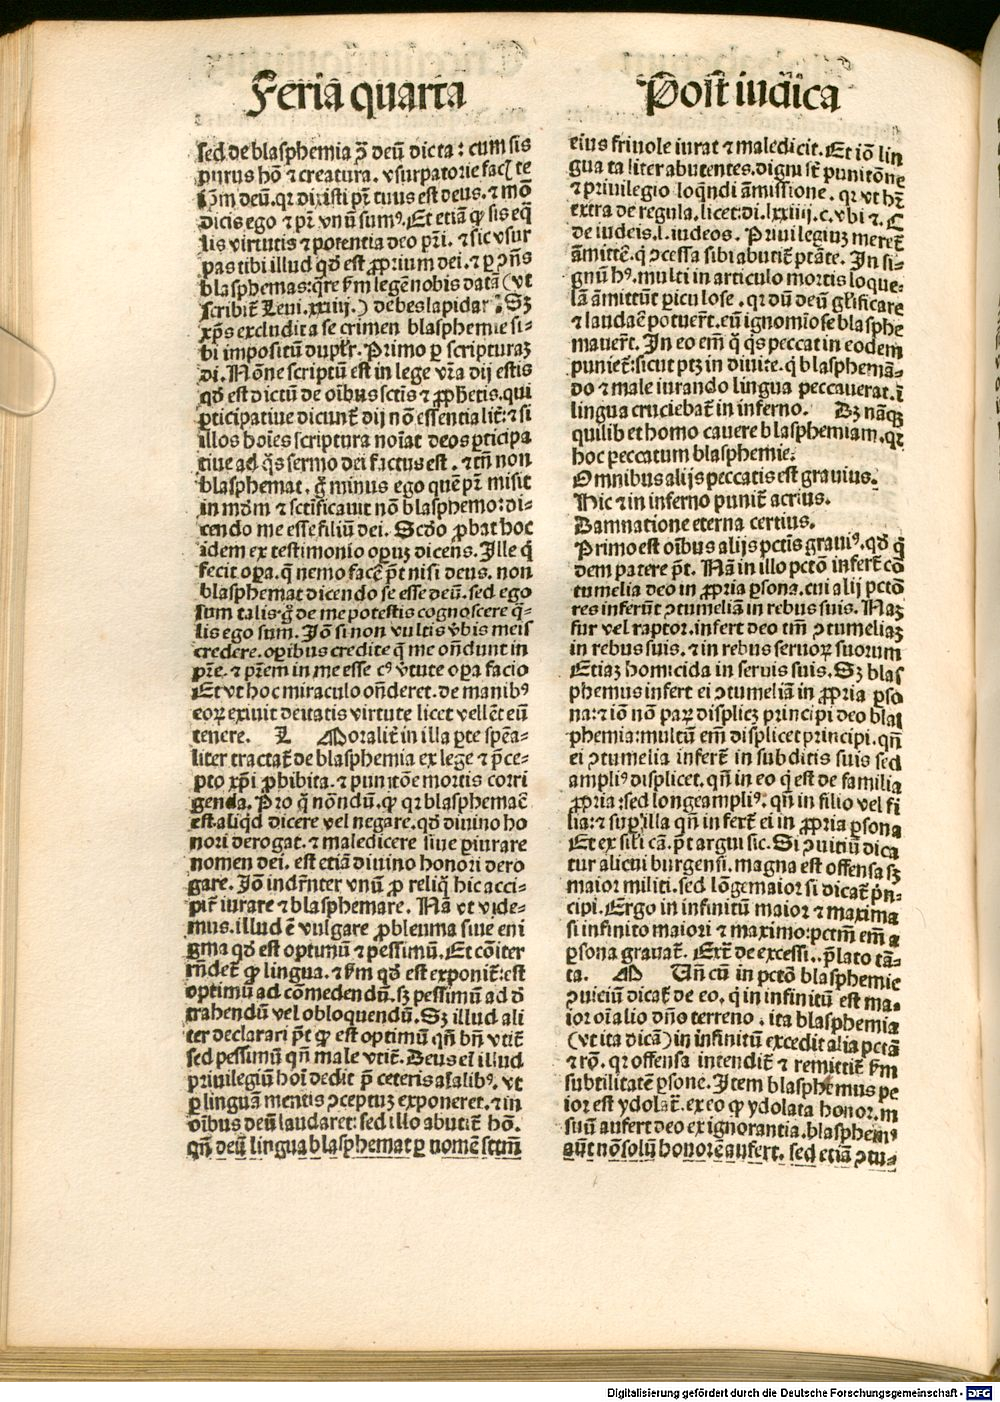 Feriā quarta
Post iudica
sed de blasphemia ꝯ̄ deū dicta: cum sis
purus hō ⁊ creatura. vsurpatorie facꝭ te
ip̄m deū. qꝛ dixisti pr̄ tuus est deus. ⁊ mō
dicis ego ⁊ pr̄ vnū sumꝰ. Et etiā ꝙ sis eq̄
lis virtutis ⁊ potentia deo pr̄i. ⁊ sic vsur
pas tibi illud qd̄ est ꝓprium dei. ⁊ ꝑ ꝯn̄s
blasphemas: qr̄e ẜm legē nobis datā (vt
scribit̄ Leui. xxiiij.) debes lapidari. Sꝫ
xp̄s excludit a se crimen blasphemie si-
bi impositū duplr̄. Primo ꝑ scripturaꝫ
di. Nōne scriptū est in lege vr̄a dij estis
qd̄ est dictū de oībus sctīs ⁊ ꝓphetis. qui
ꝑticipatiue dicunt̄ dij nō essentialit̄: ⁊ si
illos hoīes scriptura noīat deos ꝑticipa
tiue ad q̄s sermo dei factus est. ⁊ tn̄ non
blasphemat. gͦ minus ego quē pr̄ misit
in mūdm̄ ⁊ sctīficauit nō blasphemo: di-
cendo me esse filiū dei. Scd̄o ꝓbat hoc
idem ex testimonio operꝫ dicens. Ille q̄
fecit oꝑa. q̄ nemo facē pt̄ nisi deus. non
blasphemat dicendo se esse deū. sed ego
sum talis. gͦ de me potestis cognoscere q̄-
lis ego sum. Iō si non vultis v̄bis meis
credere. oꝑibus credite q̄ me on̄dunt in
pr̄e. ⁊ pr̄em in me esse cꝰ v̄tute oꝑa facio
Et vt hoc miraculo on̄deret. de manibꝰ
eoꝝ exiuit deitatis virtute licet vellēt eū
tenere. L Moralit̄ in illa ꝑte spēa-
liter tractat̄ de blasphemia ex lege ⁊ p̄ce-
pto xp̄i ꝓhibita. ⁊ punitōe mortis corri
genda. Pro q̄ nōndū. ꝙ qꝛ blasphemaē
est. aliqd̄ dicere vel negare. qd̄ diuino ho
nori derogat. ⁊ maledicere siue ꝑiurare
nomen dei. est etiā diuino honori dero
gare. Iō indr̄nter vnū ꝓ reliq̄ hic acci-
pit̄ iurare ⁊ blasphemare. Nā vt vide-
mus. illud ē vulgare ꝓbleuma siue eni
gma qd̄ est optimū ⁊ pessimū. Et cōiter
rn̄det̄ ꝙ lingua. ⁊ ẜm qd̄ est exponit̄: est
optimū ad cōmedendū. sꝫ pessimū ad d̄
trahendū vel obloquendū. Sꝫ illud ali
ter declarari pt̄ ꝙ est optimū qn̄ bn̄ vtit̄
sed pessimū qn̄ male vtit̄. Deus em̄ illud
priuilegiū hoī dedit p̄ ceteris aīalibꝰ. vt
ꝑ linguā mentis ꝯceptuꝫ exponeret. ⁊ in
oībus deū laudaret: sed illo abutit̄ hō.
qn̄ deū lingua blasphemat ꝑ nomē sctm̄
eius friuole iurat ⁊ maledicit. Et iō lin
gua taliter abutentes. digni st̄ punitōne
⁊ priuilegio loqn̄di āmissione. qꝛ vt hr̄
extra de regula. licet: di. lxxiiij. c. vbi ⁊. C
de iudeis. l. iudeos. Priuilegiuꝫ meret̄
āmittē. q̄ ꝯcessa sibi abutit̄ ptāte. In si-
gnū hꝰ. multi in articulo mortis loque-
lā āmittūt ꝑiculose. qꝛ dū deū glīficare
⁊ laudaē potuer̄t. eū ignomīose blasphe
mauer̄t. In eo em̄ q̄ q̄s peccat in eodem
puniet̄: sicut ptꝫ in diuite. q̄ blasphemā-
do ⁊ male iurando lingua peccauerat. ī
lingua cruciebat̄ in inferno. Dꝫ nāqꝫ
quilibet homo cauere blasphemiam. qꝛ
hoc peccatum blasphemie.
Omnibus alijs peccatis est grauius.
Hic ⁊ in inferno punit̄ acrius.
Damnatione eterna certius.
Primo est oībus alijs pctīs grauiꝰ. qd̄ q̄
dem patere pt̄. Nā in illo pctō infert̄ cō
tumelia deo in ꝓpria ꝑsona. cui alij pctō
res inferūt ꝯtumeliā in rebus suis. Naꝫ
fur vel raptor. infert deo tm̄ ꝯtumeliaꝫ
in rebus suis. ⁊ in rebus seruoꝝ suorum
Etiaꝫ homicida in seruis suis. Sꝫ blas
phemus infert ei ꝯtumeliā in ꝓpria ꝑso
na: ⁊ iō nō parꝝ displicꝫ principi deo blas
phemia: multū em̄ displicet principi. qn̄
ei ꝯtumelia infert̄ in subditis suis sed
ampliꝰ displicet. qn̄ in eo q̄ est de familia
ꝓpria: sed longe ampliꝰ. qn̄ in filio vel fi
lia: ⁊ suꝑ illa qn̄ infert̄ ei in ꝓpria ꝑsona
Et ex sil̄i cā. pt̄ argui sic. Si ꝯuitiū dica
tur alicui burgensi. magna est offensa sꝫ
maior militi. sed lōge maior si dicat̄ pn̄-
cipi. Ergo in infinitū maior ⁊ maxima
si infinito maiori ⁊ maximo: pctm̄ em̄ a
ꝑsona grauat̄. Ext̄ de excessi.. p̄lato tā-
ta. M Un̄ cū in pctō blasphemie
ꝯuiciū dicat̄ de eo. q̄ in infinitū est ma-
ior oī alio dn̄o terreno. ita blasphemia
(vt ita dicā) in infinitū excedit alia pctā
⁊ rō. qꝛ offensa intendit̄ ⁊ remittit̄ ẜm
subtilitatē ꝑsone. Item blasphemus pe
ior est ydolat̄. ex eo ꝙ ydolata honorem
suū aufert deo ex ignorantia. blasphemꝰ
aūt nō solū honorē aufert. sed etiā ꝯtu-
Digitalisierung gefördert durch die Deutsche Forschungsgemeinschaft - DFG